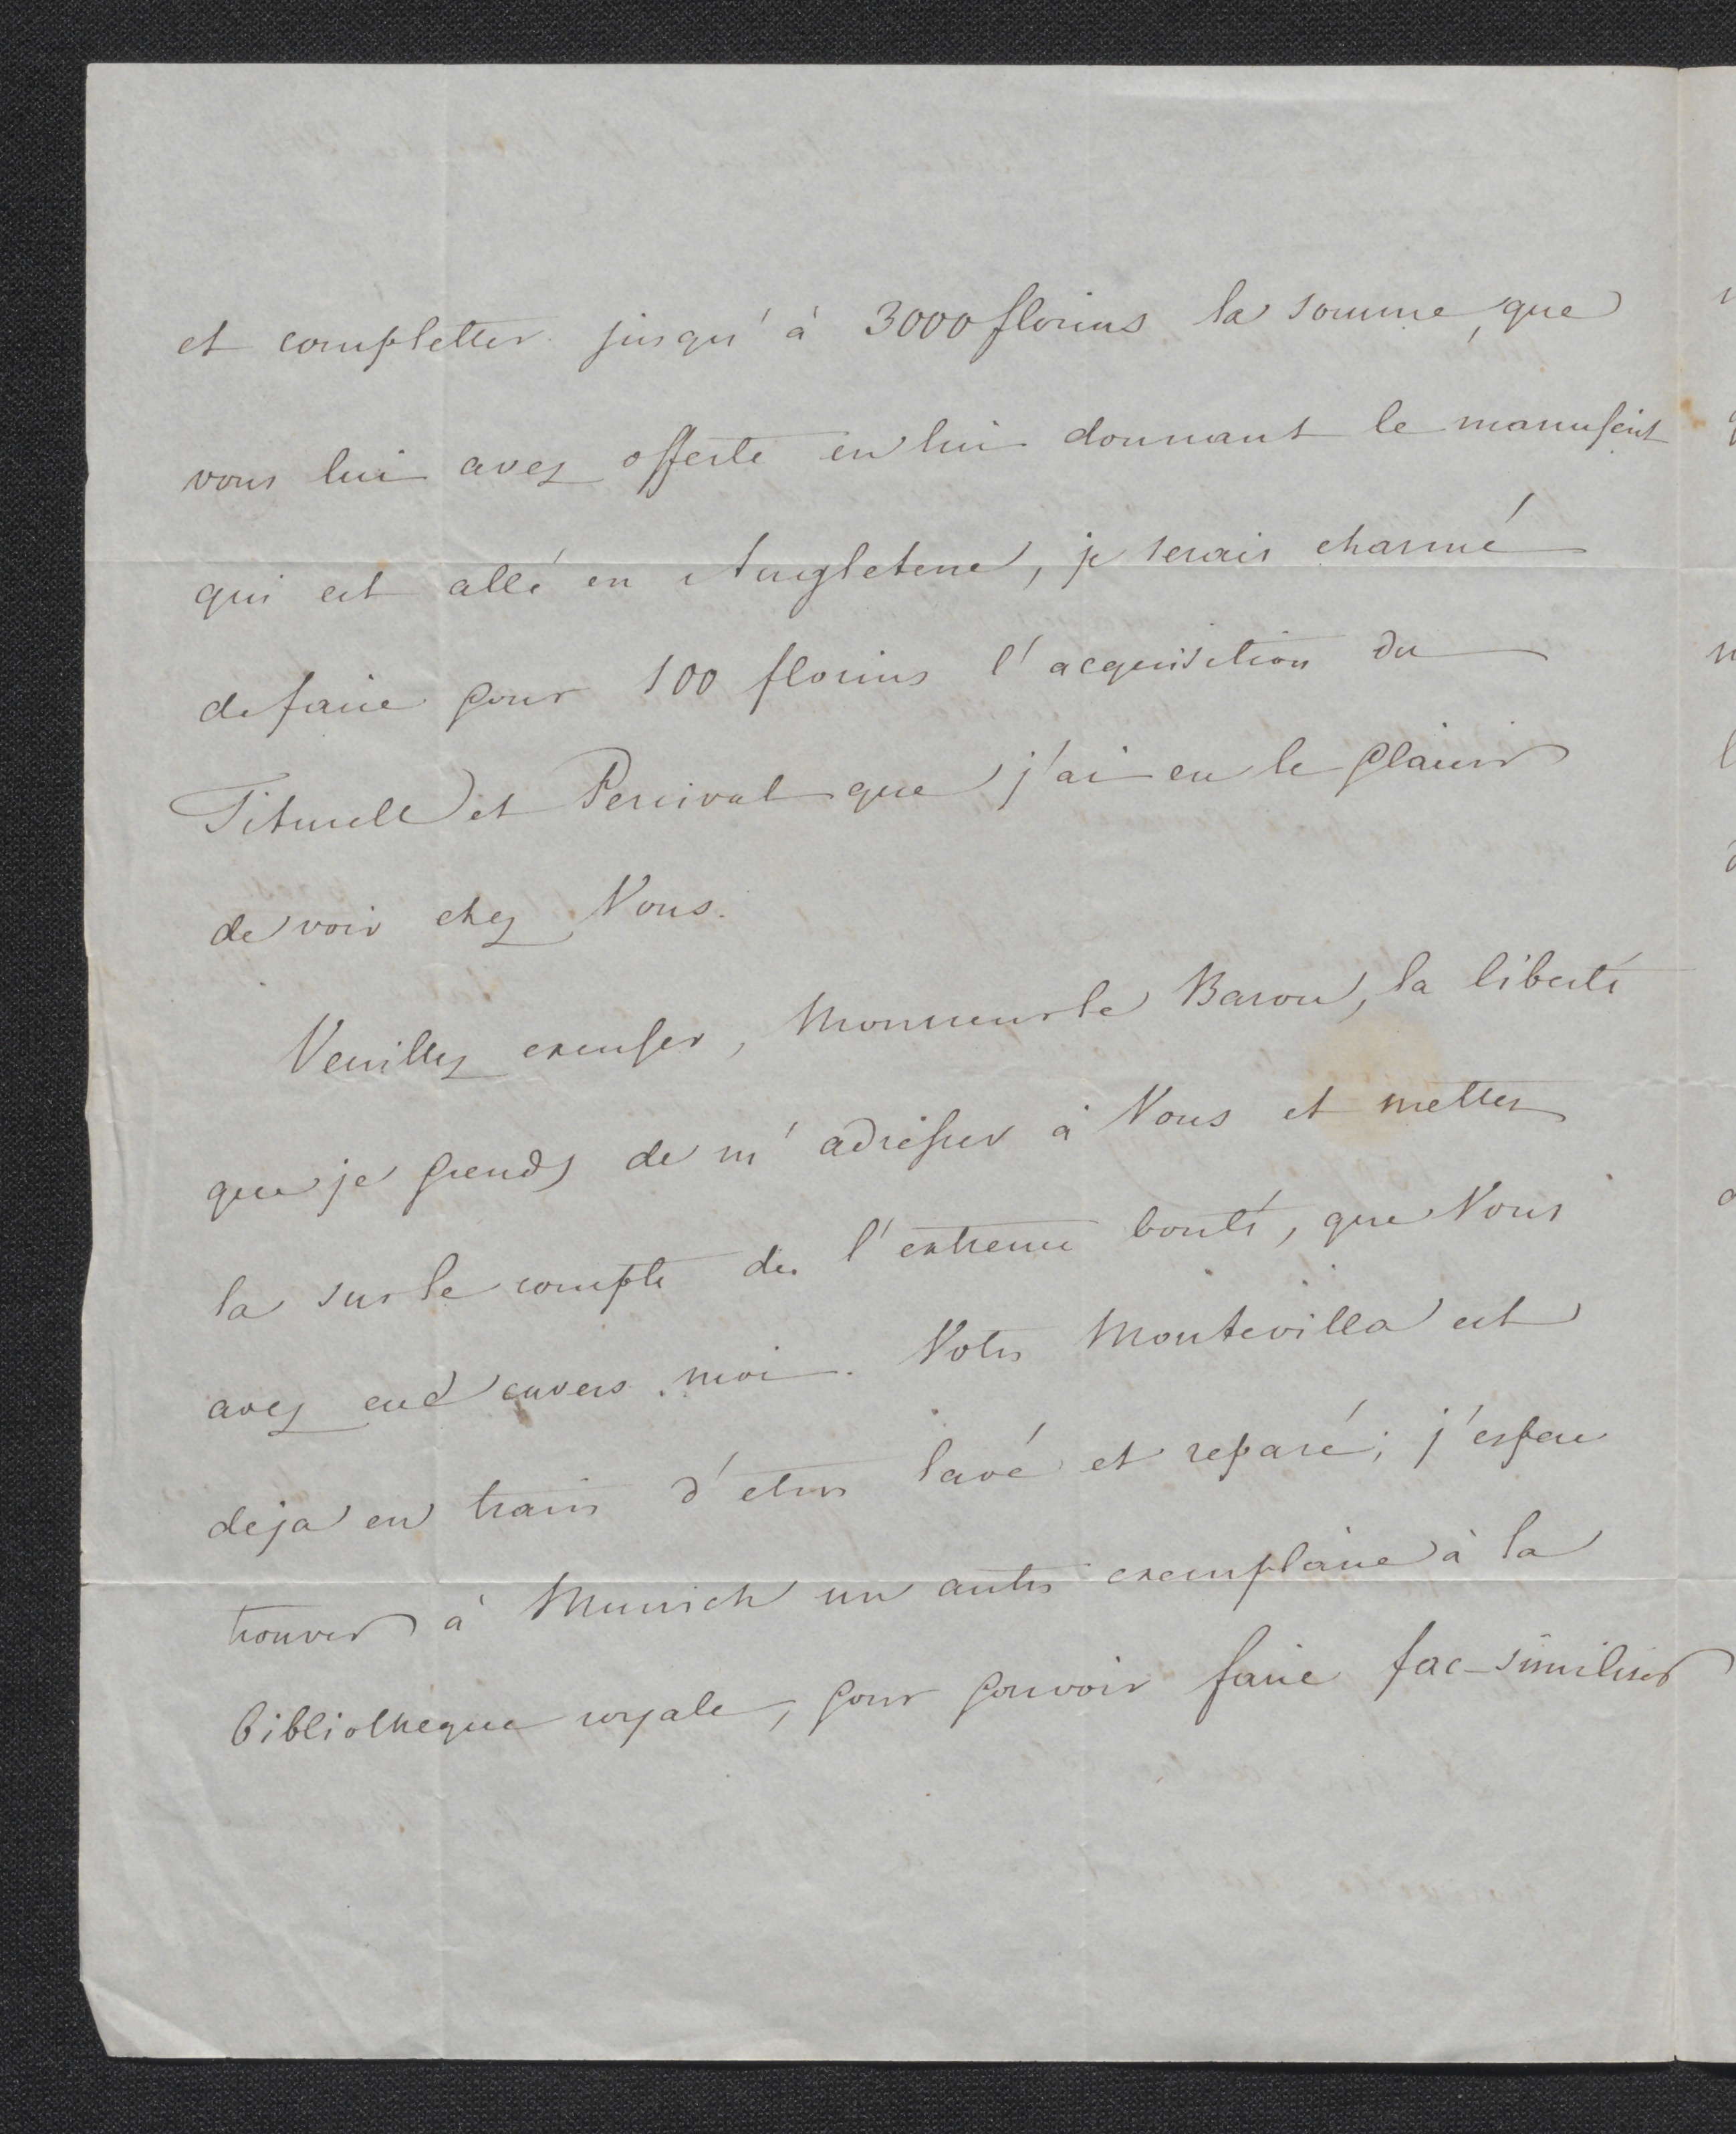 et completter jusqu'à 3000 florins la somme, que
vous lui avez offerte en lui donnant le manuscrit
qui est allé en Angleterre, je serais charmé
de faire pour 100 florins l'acquisition du
Titurell et Percival que j'ai eu le plaisir
de voir chez Vous.
Veuillez excuser, Monsieur le Baron, la liberté
que je prends de m'adresser à Vous et mettez
la sur le compte de l'extreme bonté, que Vous
avez eue envers moi. Votre Montevilla est
deja en train d'etre lavé et reparé; j'espere
trouver à Munich un autre exemplaire à la
bibliothèque royale, pour pouvoir faire fac-similiser